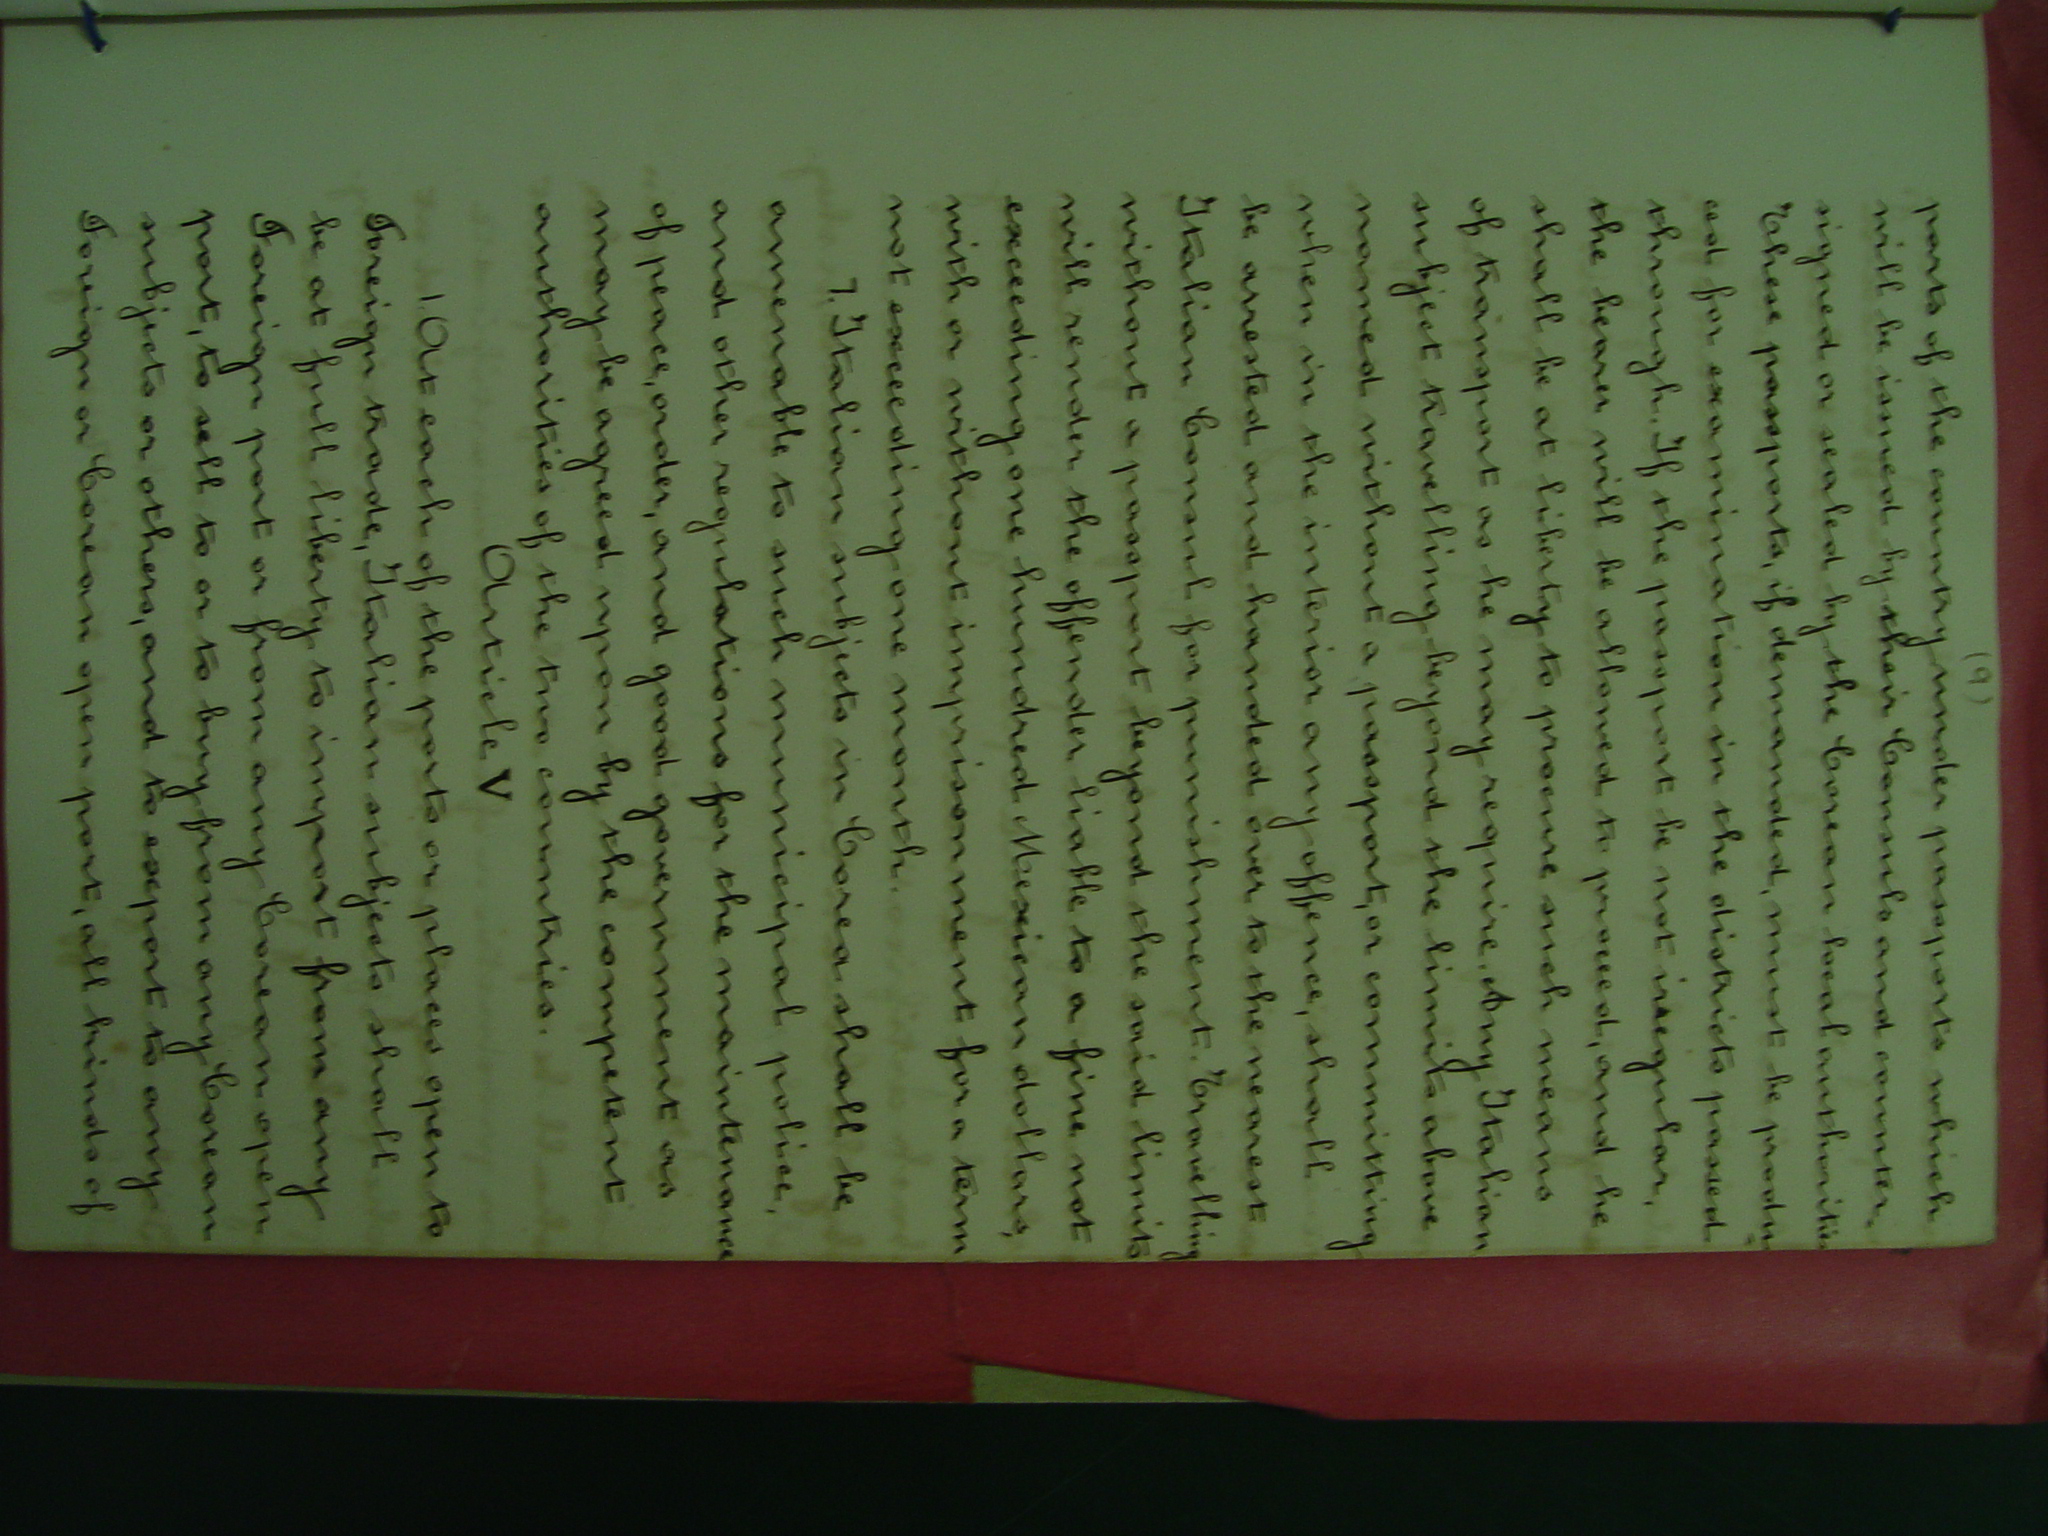 (9)
parts of the country under passports which
will be issued by their Consuls and counter,
signed or sealed by the Corean local authorities
These passports, if demanded, must be produ,
ced for examination in the districts passed
through. If the passport be not irregular,
the bearer will be allowed to proceed, and he
shall be at liberty to procure such means
of transport as he may require. Any Italian
subject travelling beyond the limits above
named without a passport, or committing
when in the interior any offence, shall
be arrested and handed over to the nearest
Italian Consul for punishment. Travelling
without a passport beyond the said limits
will render the offender liable to a fine not
exceeding one hundred Mexican dollars,
with or without imprisonment for a term
not exceeding one month.
7. Italian subjects in Corea shall be
amenable to such municipal police,
and other regulations for the maintenance
of peace, order, and good government as
may be agreed upon by the competent
authorities of the two countries.
Article V
1. At each of the ports or places open to
Foreign trade, Italian subjects shall
be at full liberty to import from any
Foreign port or from any Corean open
port, to sell to or to buy from any Corean
subjects or others, and to export to any
Foreign or Corean open port, all kinds of